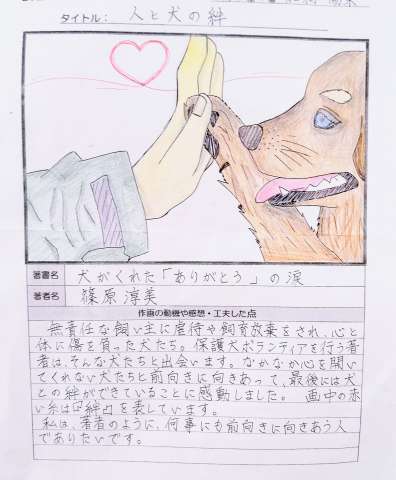 タイトル： 人と犬の絆
著書名 犬がくれた「ありがとう」の涙
著者名 篠原淳美
作画の動機や感想・工夫した点
無責任な飼い主に虐待や飼育放棄をされ、心と
体に傷を負った犬たち。保護犬ボランティアを行う著
者は、そんな犬たちと出会います。なかなか心を開い
てくれない犬たちと前向きに向きあって、最後には犬
との絆ができていることに感動しました。 画中の赤
い糸は『絆』を表しています。
私は、著者のように、何事にも前向きに向きあう人
でありたいです。